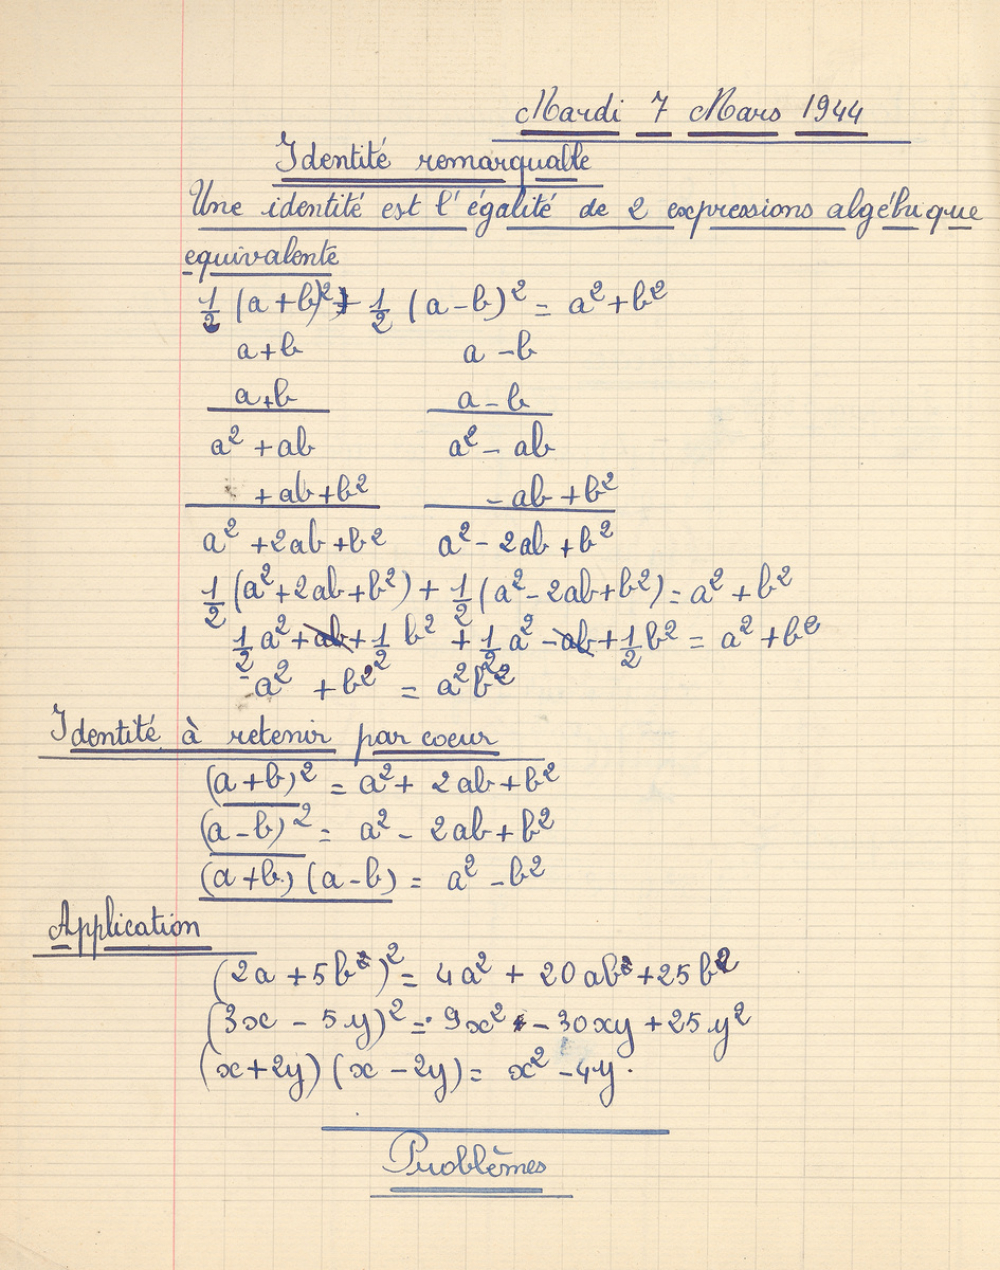 Mardi 7 Mars 1944
Identité remarquable
Une identité est l'égalité de 2 expressions algébrique
equivalente
1/2 (a+b)² + 1/2 (a-b)² = a²+b²
a+b a-b
a+b a-b
a² + ab a² - ab
+ ab + b² - ab + b²
a² + 2ab + b² a² - 2ab + b²
1/2 (a²+2ab+b²) + 1/2 (a²-2ab+b²) = a² + b²
1/2 a² + ab + 1/2 b² + 1/2 a² - ab + 1/2 b² = a² + b²
a² + b² = a²b²
Identité à retenir par coeur
(a+b)² = a² + 2ab + b²
(a-b)² = a² - 2ab + b²
(a+b) (a-b) = a² - b²
Application
(2a + 5b²)² = 4a² + 20ab² + 25b²
(3x - 5y)² = 9x² - 30xy + 25y²
(x+2y) (x-2y) = x² - 4y.
Problèmes